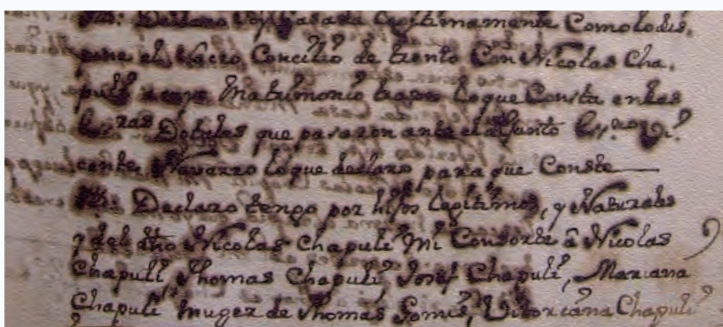 Yt: Declaro soy casada legitimamente Como lo dis,
pone el Sacro Concilio de trento Con Nicolas Cha,
puli a cuyo Matrimonio traxe lo que Consta en las
Dotales que pasaron ante el
cente Navarro lo que declaro para que Conste
Yt: Declaro tengo por hijos legitimos, y Naturales
y del dho Nicolas Chapuli Mi Consorte â Nicolas
Chapuli Thomas Chapuli, Josef Chapuli, Mariana
Chapuli muger de Thomas Gomis, Vitoriana Chapuli